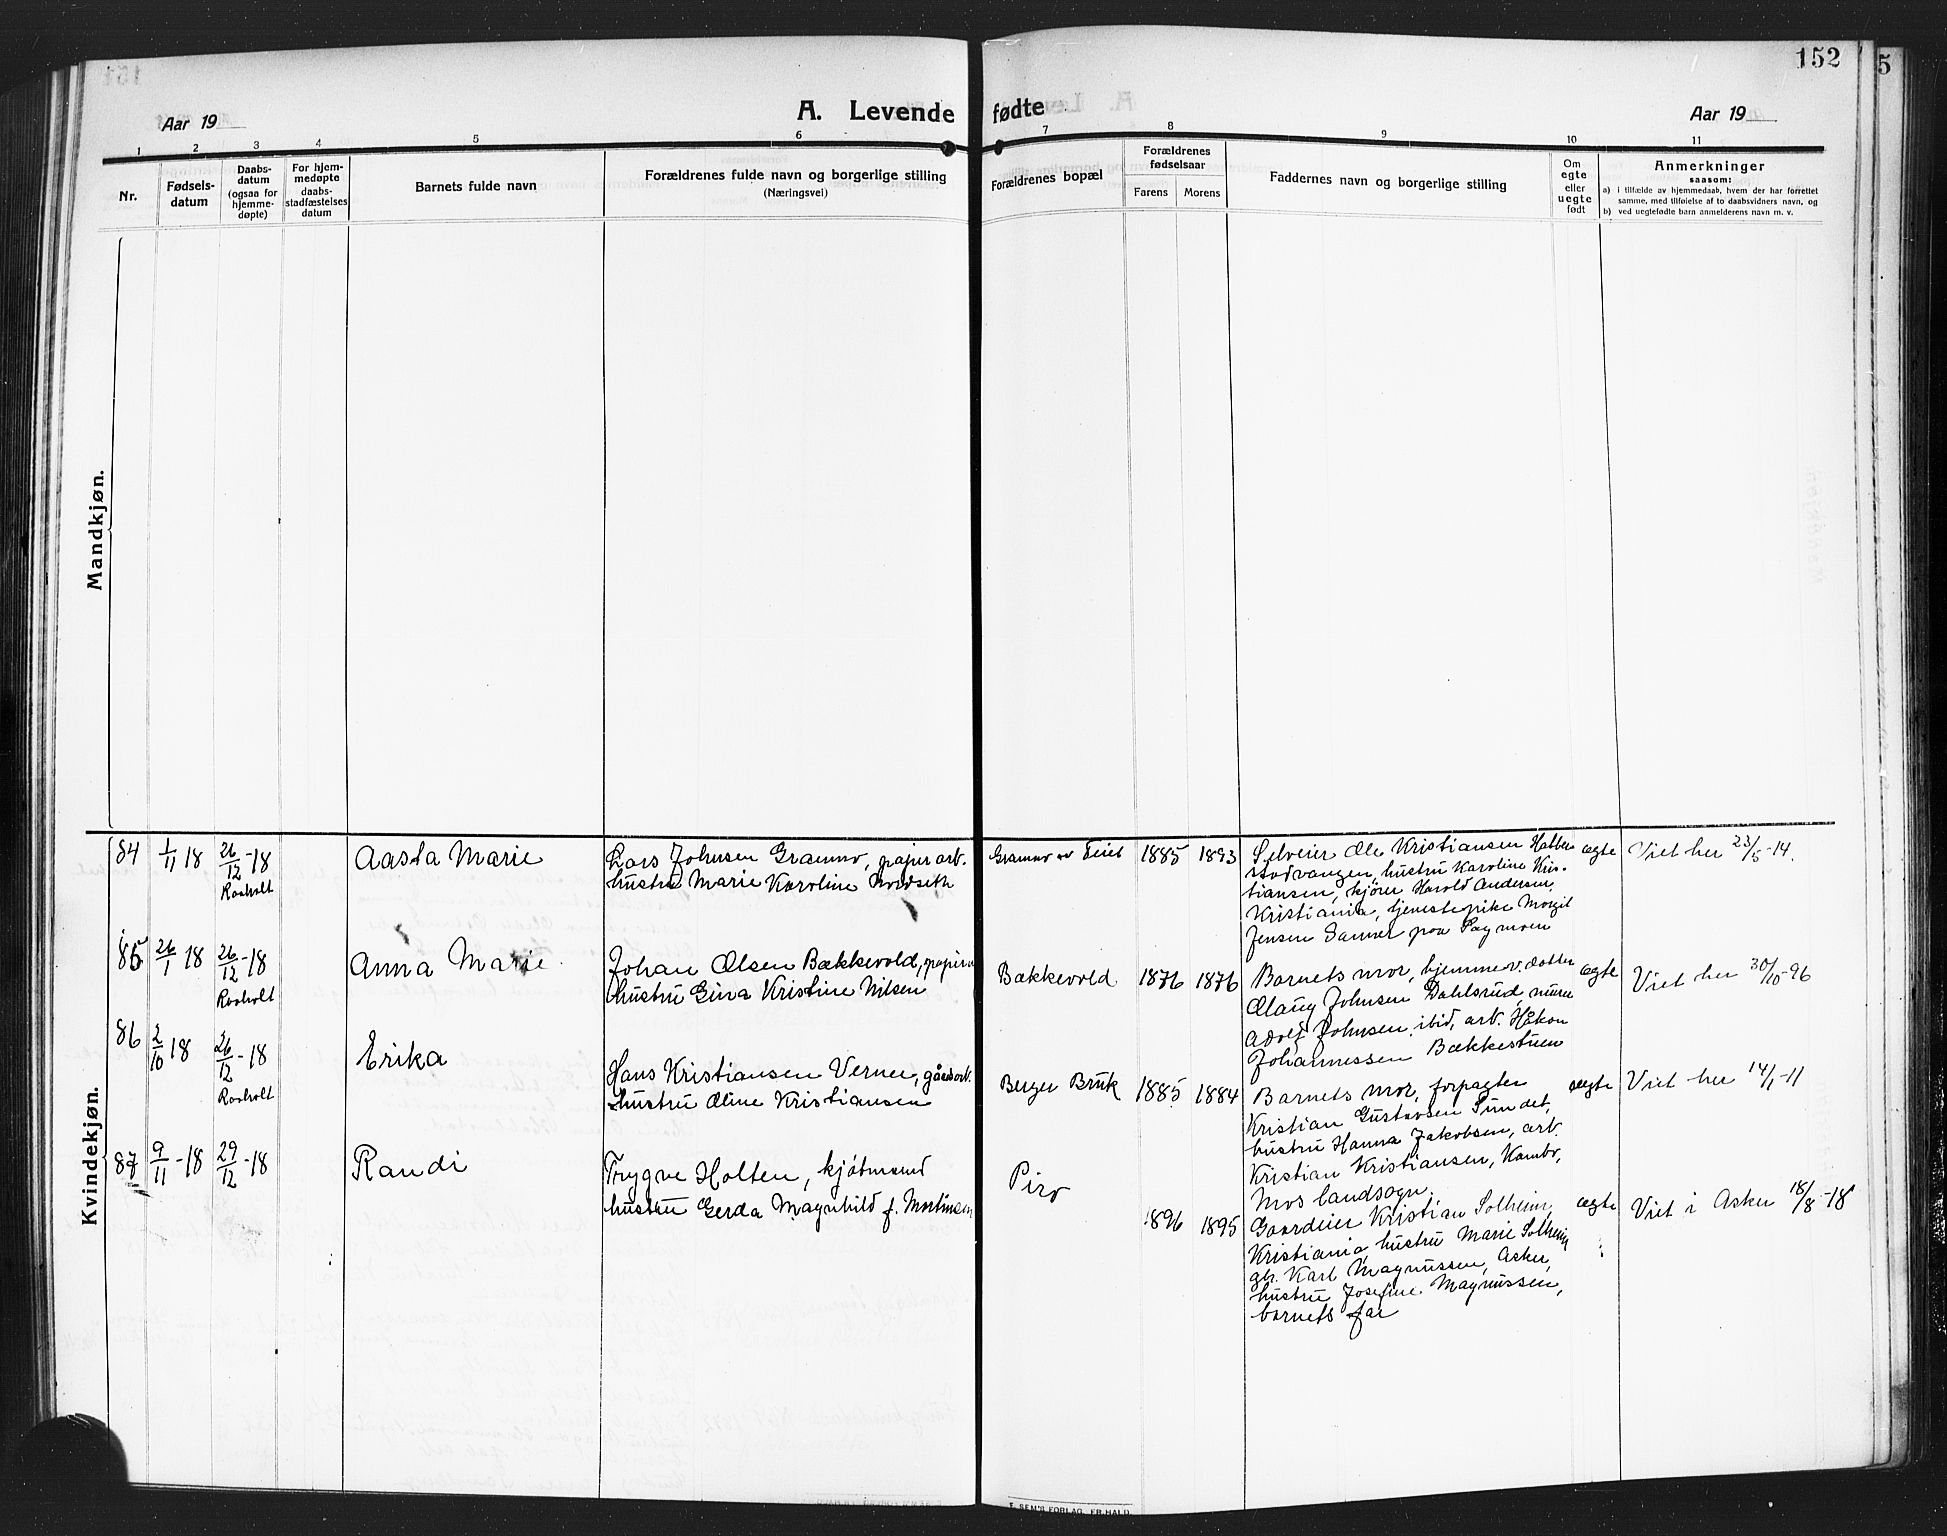 152
5
A. Levende fødte
Aar 19
Aar 19
1 2 3 4 5 6 7 8 9 10 11
Nr.
Fødsels-
datum
Daabs-
datum
(ogsaa for
hjemme-
døpte)
For hjem-
medøpte
daabs-
stadfæstelses
datum
Barnets fulde navn
Forældrenes fulde navn og borgerlige stilling
(Næringsvei)
Forældrenes bopæl
Forældrenes
fødselsaar
Farens Morens
Faddernes navn og borgerlige stilling
Om
egte
eller
uegte
født
Anmerkninger
saasom:
a) i tilfælde av hjemmedaab, hvem der har forrettet
samme, med tilføielse af to daabsvidners navn, og
b) ved uegtefødte barn anmelderens navn m. v.
Mandkjøn.
Kvindekjøn.
84 1/11 18 26/12-18
Raaholt
Aasta Marie
Lars Johnsen Gramno, papirarb.
hustru Marie Karoline Nordseth
1885 1893
Selveier Ole Kristiansen
hustru Karoline Kris-
tiansen, kjører Harald Andersen,
Kristiania, tjenestepike
Jensen Sanner paa
ægte
Viet her 23/5-14.
85 26/1 18 26/12-18
Raaholt
Anna Marie
Johan Olsen Bækkevold,
hustru Gina Kristine Nilsen
Bækkevold
1876 1876
Barnets mor, hjemmev. datter
Olaug Johnsen Dahlsrud, murer
Adolf Johnsen ibid, arb. Håkon
Johannessen Bækkestuen
ægte
Viet her 30/10-96
86 2/10 18 26/12-18
Raaholt
Erika
Hans Kristiansen Verner, gårdsarb.
hustru Oline Kristiansen
Berger Bruk
1885 1884
Barnets mor, forpagter
Kristian Gustavsen Sundet,
hustru Hanna Jakobsen, arb.
Kristian Kristiansen, Kambo,
Mos landsogn.
ægte
Viet her 14/1-11
87 9/11-18 29/12-18
Randi
Trygve Holten, kjøtmand
hustru Gerda Magnhild f. Martinsen
Piro
1896 1895
Gaardeier Kristian Solheim,
Kristiania, hustru Marie Solheim
gb. Karl Magnussen, Asker,
hustru Josefine Magnussen,
barnets far
ægte
Viet i Asker 18/8-18
E. SEM'S FORLAG, FR.HALD